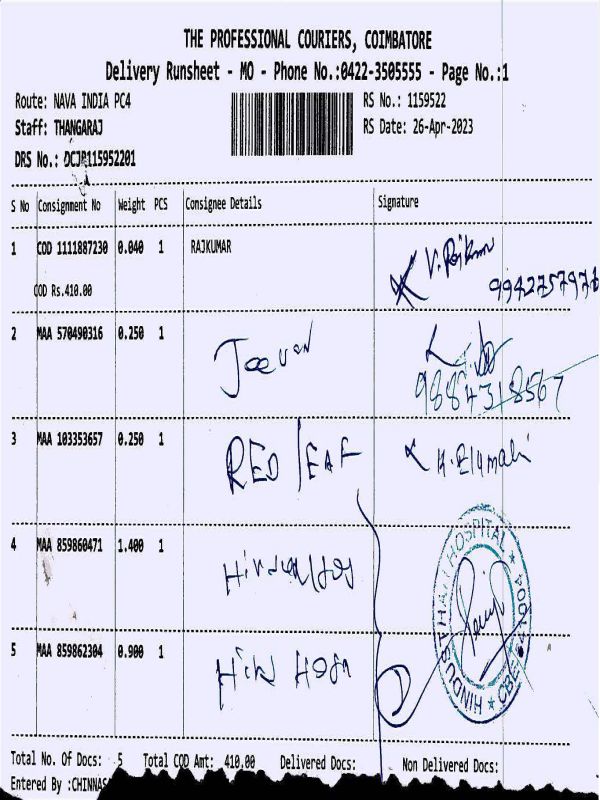 THE PROFESSIONAL COURIERS, COIMBATORE
Delivery Runsheet - MO - Phone No.:0422-3505555 - Page No.:1
Route: NAVA INDIA PC4 RS No.: 1159522
Staff: THANGARAJ RS Date: 26-Apr-2023
DRS No.: 115952201
S No Consignment No Weight PCS Consignee Details Signature
1 COD 1111887230 0.040 1 RAJKUMAR
COD Rs.410.00
2 MAA 570490316 0.250 1 Jeevan
9884318567
3 MAA 103353657 0.250 1 RED LEAF
4 MAA 859860471 1.400 1
5 MAA 859862304 0.900 1
HINDUSTHAN HOSPITAL
Total No. Of Docs: 5 Total COD Amt: 410.00 Delivered Docs: Non Delivered Docs:
Entered By :